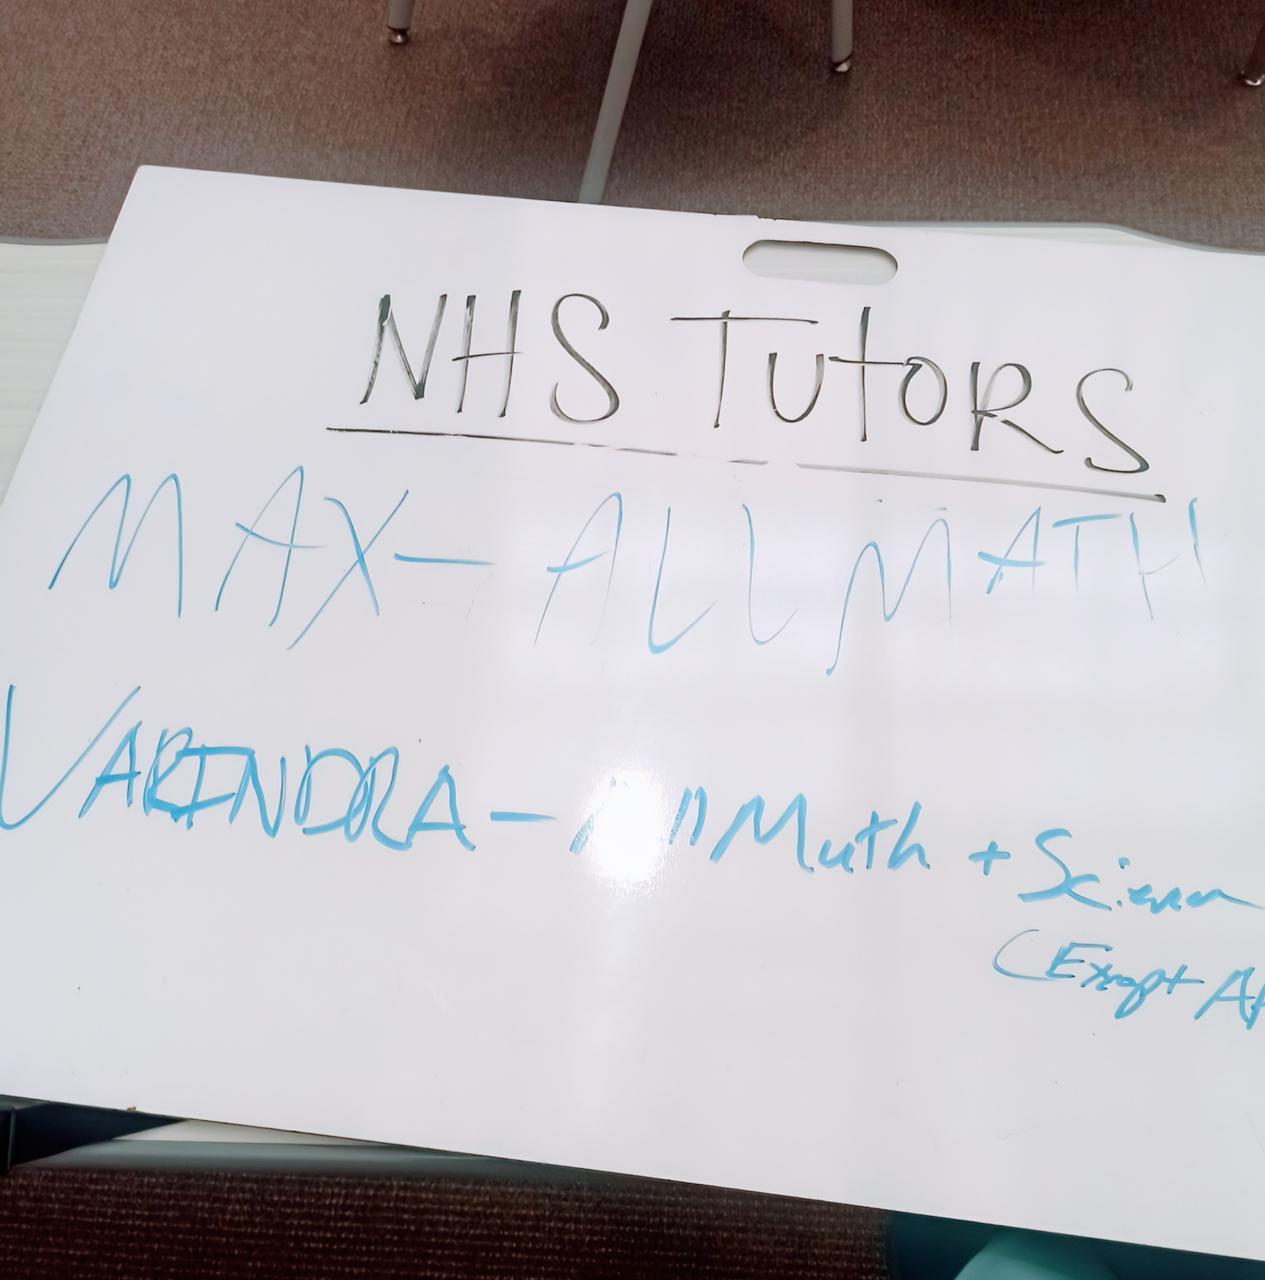 NHS TUTORS
MAX - ALL MATH
VARINDRA - All Math + Science
(Except AP